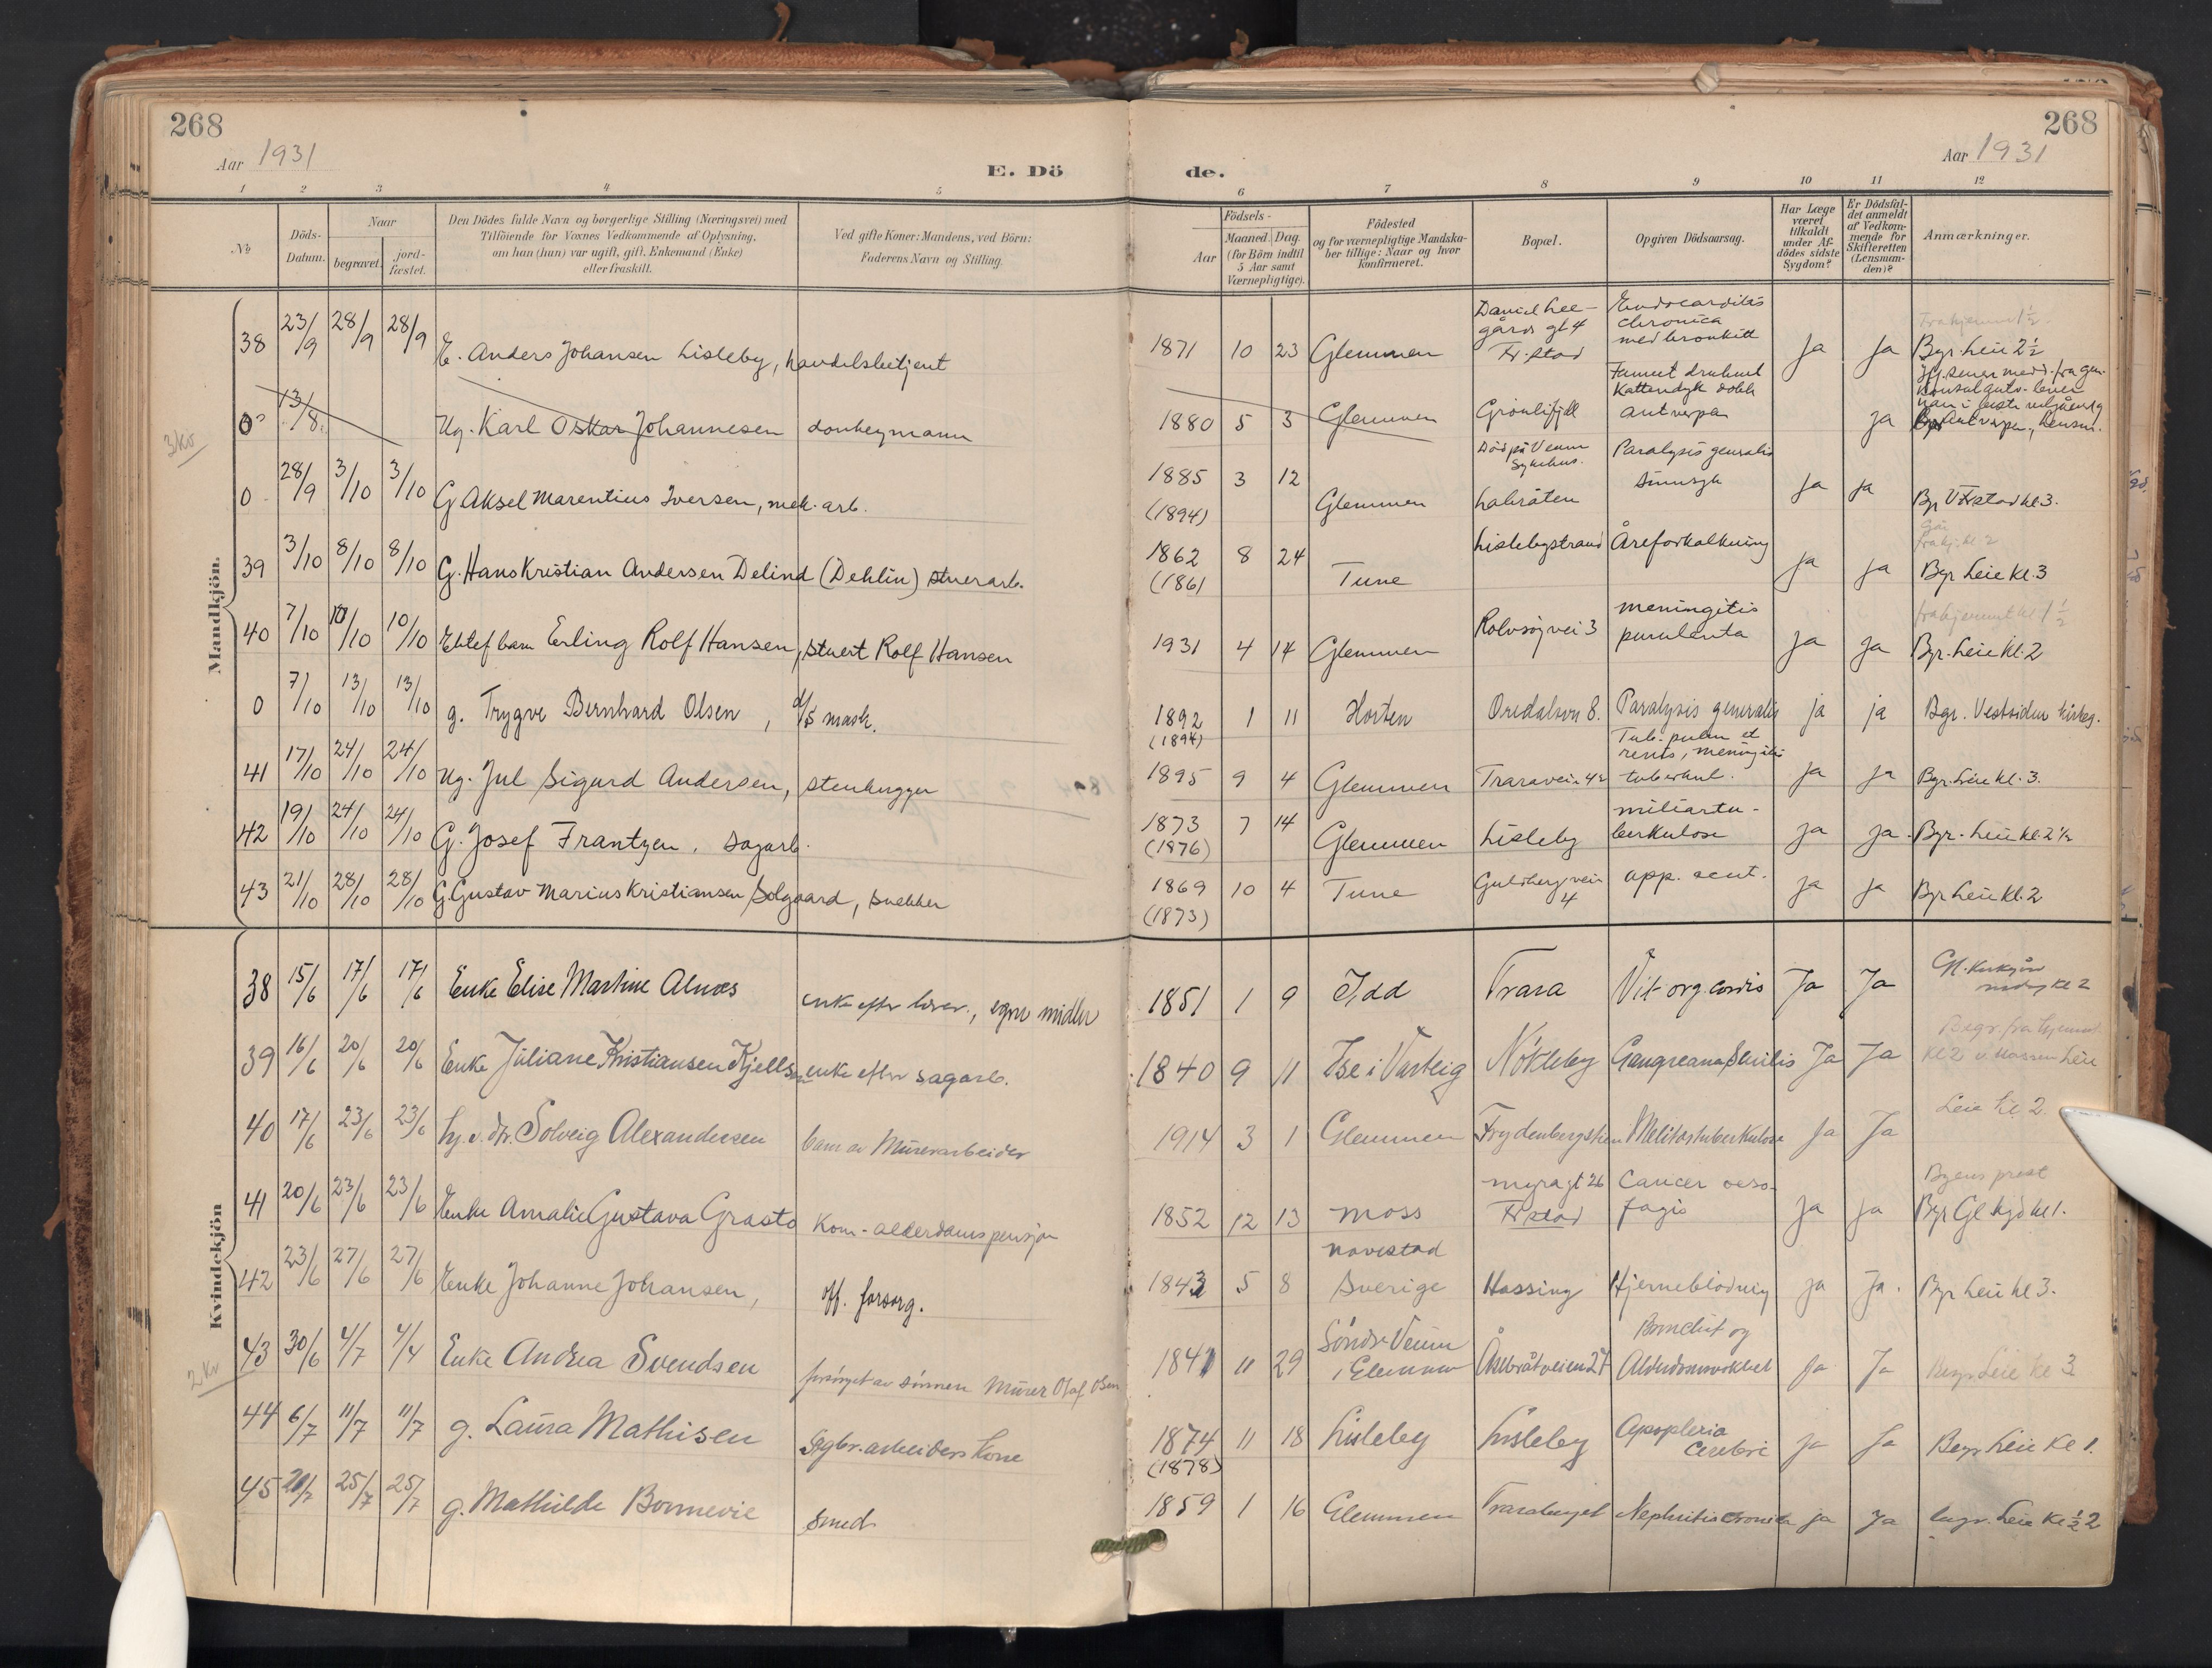 268
Aar 1931
E. Dö
1 2 3 4 5
№
Döds-Datum.
Naar
begravet.
jord-fæstet.
Den Dödes fulde Navn og borgerlige Stilling (Næringsvei) med
Tilföiende for Voxnes Vedkommende af Oplysning,
om han (hun) var ugift, gift, Enkemand (Enke)
eller fraskilt.
Ved gifte Koner: Mandens, ved Börn:
Faderens Navn og Stilling.
Mandkjön.
38 23/9 28/9 28/9 E. Anders Johansen Lisleby, handelsbetjent
0 13/8 Ug. Karl Oskar Johannesen donkeymann
3/kv
0 28/9 3/10 3/10 G Aksel Marentius Iversen, mek. arb.
39 3/10 8/10 8/10 G. Hans Kristian Andersen Delind (Dehlin) stuerarb.
40 7/10 10/10 10/10 Ektef barn Erling Rolf Hansen, stuert Rolf Hansen
0 7/10 13/10 13/10 g. Trygve Bernhard Olsen, d/s mask.
41 17/10 24/10 24/10 Ug. Jul Sigurd Andersen, stenhugger
42 19/10 24/10 24/10 G. Josef Frantzen, sagarb.
43 21/10 28/10 28/10 G. Gustav Marius Kristiansen Solgaard, snekker
Kvindekjön
38 15/6 17/6 17/6 Enke Elise Martine Alnæs enke efter, egne midler
39 16/6 20/6 20/6 Enke Juliane Kristiansen Kjells enke efter sagarb.
40 17/6 23/6 23/6 Solveig Alexandersen barn av Murerarbeider
41 20/6 23/6 23/6 Enke Amalie Gustava Grasto Kom-alderdomspensjon
42 23/6 27/6 27/6 Enke Johanne Johansen, off. forsorg.
43 30/6 4/7 4/7 Enke Andrea Svendsen forsörget av sönnen Murer Olaf Olsen
2 kv
44 6/7 11/7 11/7 g. Laura Mathisen Sagbr. arbeiders kone
45 21/7 25/7 25/7 g. Mathilde Bonnevie Smed
268
Aar 1931
de.
6 7 8 9 10 11 12
Födsels-
Aar
Maaned. Dag.
(for Börn indtil
5 Aar samt
Værnepligtige).
Födested
og for værnepligtige Mandska-
ber tillige: Naar og hvor
konfirmeret.
Bopæl.
Opgiven Dödsaarsag.
Har Læge
været
tilkaldt
under Af-
dödes sidste
Sygdom?
Er Dödsfal-
det anmeldt
af Vedkom-
mende for
Skifteretten
(Lensman-
den)?
Anmærkninger.
1871 10 23 Glemmen Daniel Lee-
gårds gt 4
Fr.stad
Endocarditis
chronica
med bronkitt
ja ja Bgr. Leie 2½
1880 5 3 Glemmen Grönlifjell
Funnet druknet
Kattendyk dokk
Antverpen
ja
1885
(1894) 3 12 Glemmen
Död på Veum
Sykehus.
Labråten
Paralysis generalis
Sinnsyk
ja ja Bgr V Fr.stad kl 3.
1862
(1861 8 24 Tune Lislebystrand Åreforkalkning ja ja Bgr Leie kl. 3
1931 4 14 Glemmen Rolvsøyvei 3 meningitis
purulenta ja ja frahjemmet kl 1½
Bgr. Leie kl. 2
1892
(1894) 1 11 Horten Oredalsvn 8. Paralysis generalis ja ja Bgr. Vestsiden kirkeg.
1895 9 4 Glemmen Traraveien 42 Tub. pulm et
renis, meningitis
tuberkul. ja ja Bgr. Leie kl. 3.
1873
(1876) 7 14 Glemmen Lisleby miliartu-
berkulose ja ja. Bgr. Leie kl. 2½
1869
(1873) 10 4 Tune Guldbergvein
4 app. acut. ja ja Bgr Leie kl. 2
1851 1 9 Idd Trara Vit. org. cordis Ja Ja Gl. kl 2
1840 9 11 Ise i Varteig Nökleby Gangreana Senilis Ja Ja Begr. fra hjemmet
kl 2 Leie
1914 3 1 Glemmen Frydenbergstien tuberkulose Ja Ja Leie kl 2.
1852 12 13 Moss Myragt 26
Fr.stad Cancer oeso-
fagis ja ja Byens prest
Bgr Gl kl 1.
1843 5 8 Navestad
Sverige Hassing Hjerneblödning ja Ja. Bgr Leie kl 3.
1841 11 29 Söndre Veum
i Glemmen Åsebråtveien 27 Bronchit og
Alderdomssvakhet Ja Ja Begr Leie kl 3
1874
(1878) 11 18 Lisleby Lisleby Apoplexia
Cerebri ja Ja Begr Leie kl 1.
1859 1 16 Glemmen Traraberget Nephritis cronica ja Ja begr. Leie kl ½ 2